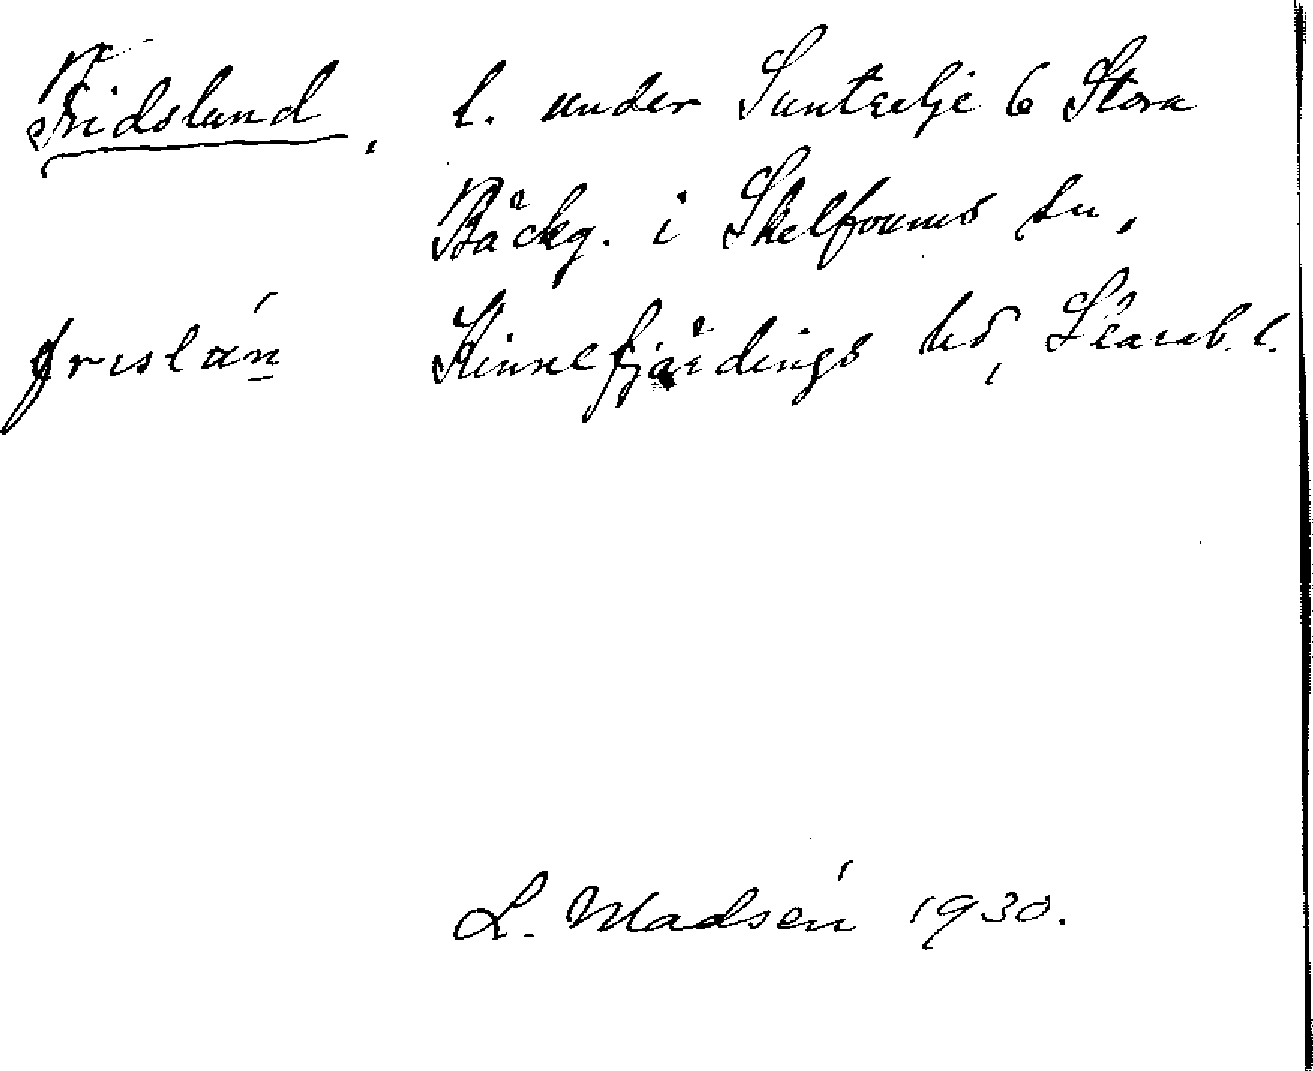 Fridslund, l. under Suntetlje 6 Stora
Bäckg. i Skelfvums sn,
frıslán Kinnefjärdings hd, Skarab. l.
L. Madsén 1930.